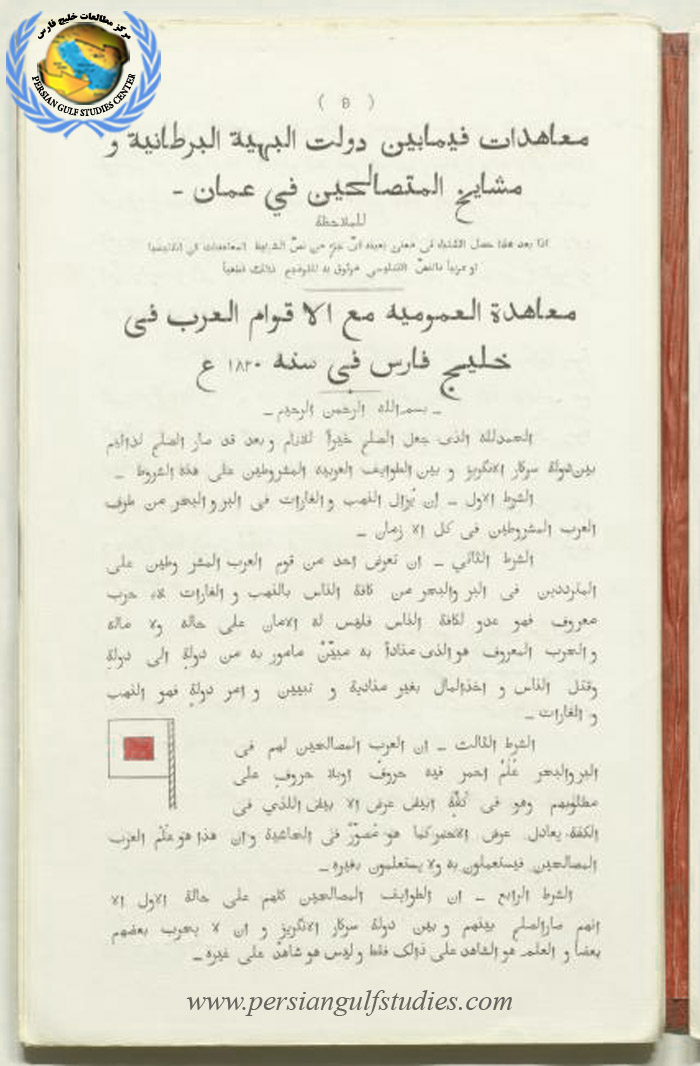 مركز مطالعات خليج فارس
PERSIAN GULF STUDIES CENTER
( ٥ )
معاهدات فيمابين دولت البهية البرطانية و
مشايخ المتصالحين في عمان -
للملاحظة
اذا بعد هذا حصل الاشتباه فى معنى بعينه اىّ جزء من نصّ الشرايط المعاهدات فى انكليسها
او عربياً فالنصّ الانكليسى موثوق به للترقيم ذالك قطعياً
معاهدة العموميه مع الا قوام العرب فى
خليج فارس فى سنه ١٨٢٠ ع
ـ بسم الله الرحمن الرحيم ـ
الحمدلله الذى جعل الصلح خيراً للانام و بعد قد صار الصلح لدائيم
بين دولة سركار الانگريز و بين الطوايف العربيه المشروطين على هذه الشروط ـ
الشرط الاول ـ ان يُزال النهب و الغارات فى البر و البحر من طرف
العرب المشروطين فى كل الا زمان ـ
الشرط الثاني ـ ان تعرض احد من قوم العرب المشر وطين على
المترددين فى البر والبحر من كافة الناس بالنهب و الغارات بلا حرب
معروف فهو عدو لكافة الناس فليس له الامان على حاله ولا ماله
و الحرب المعروف هو الذى منادأ به مبيّنٌ مامور به من دولةٍ الى دولةٍ
وقتل الناس و اخذ المال بغير منادية و تبيين و امر دولةٍ فهو النهب
و الغارات ـ
الشرط الثالث ـ ان العرب المصالحين لهم فى
البر والبحر عَلَمٌ احمر فيه حروفٌ اوبلا حروفٍ على
مطلوبهم وهو فى كفّةٍ ابيض عرض الا بيض اللذي فى
الكفة يعادل عرض الاحمر كما هو مُصوّرٌ فى الحاشية و ان هذا هو عَلَم العرب
المصالحين فيستعملون به ولا يستعملون بغيره ـ
الشرط الرابع ـ ان الطوايف المصالحين كلهم على حالة الاول الا
انهم صار الصلح بينهم و بين دولة سركار الانگريز و ان لا يحرب بعضهم
بعضاً و العلم هو الشاهد على ذالک فقط و ليس هو شاهدٌ على غيره ـ
www.persiangulfstudies.com